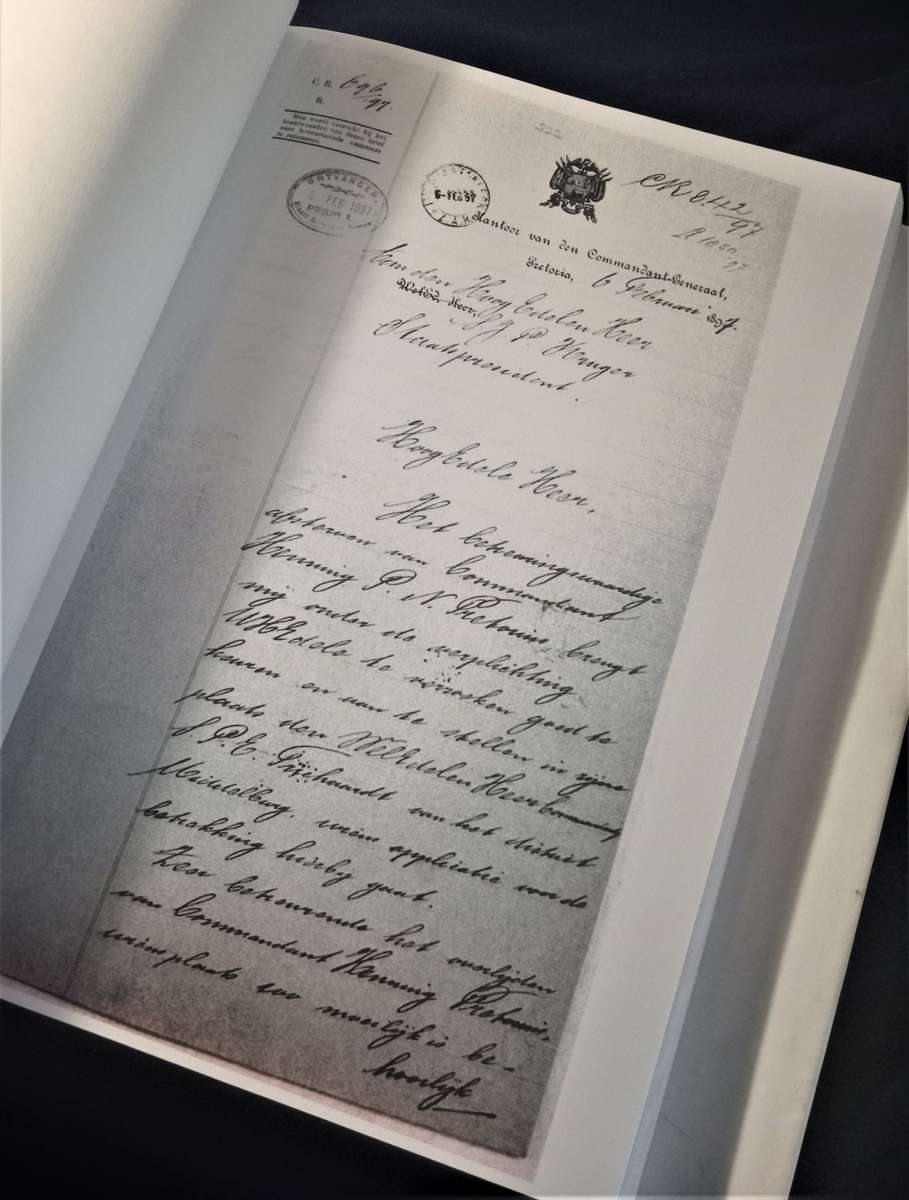 C. R. 696/97.
R.
Men wordt verzocht bij het
beantwoorden van dezen brief
naar bovenstaande nummers
te refereeren.
ONTVANGEN
FEB 1897
6-FEB 97
222
CR 842/97
R 1850/97
Kantoor van den Commandant-Generaal,
Pretoria, 6 Februari 1897.
Aan den Hoog Edelen Heer
WelEd. Heer, S J P Kruger
Staatspresident.
HoogEdele Heer,
Het betreuringswaardige
afsterven van Commandant
Henning P. N. Pretorius, brengt
mij onder de verplichting
UHEdele te verzoeken goed te
keuren en aan te stellen in zijne
plaats den WelEdelen Heer Commandant
S. P. E. Trichaardt van het district
Middelburg, wiens applicatie voor de
betrekking hierbij gaat.
Zeer betreurende het overlijden
van Commandant Henning Pretorius,
wiens plaats zoo moeilijk is be-
hoorlijk